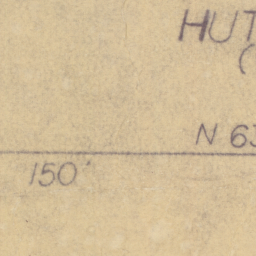 HUT
(
N 63
150'